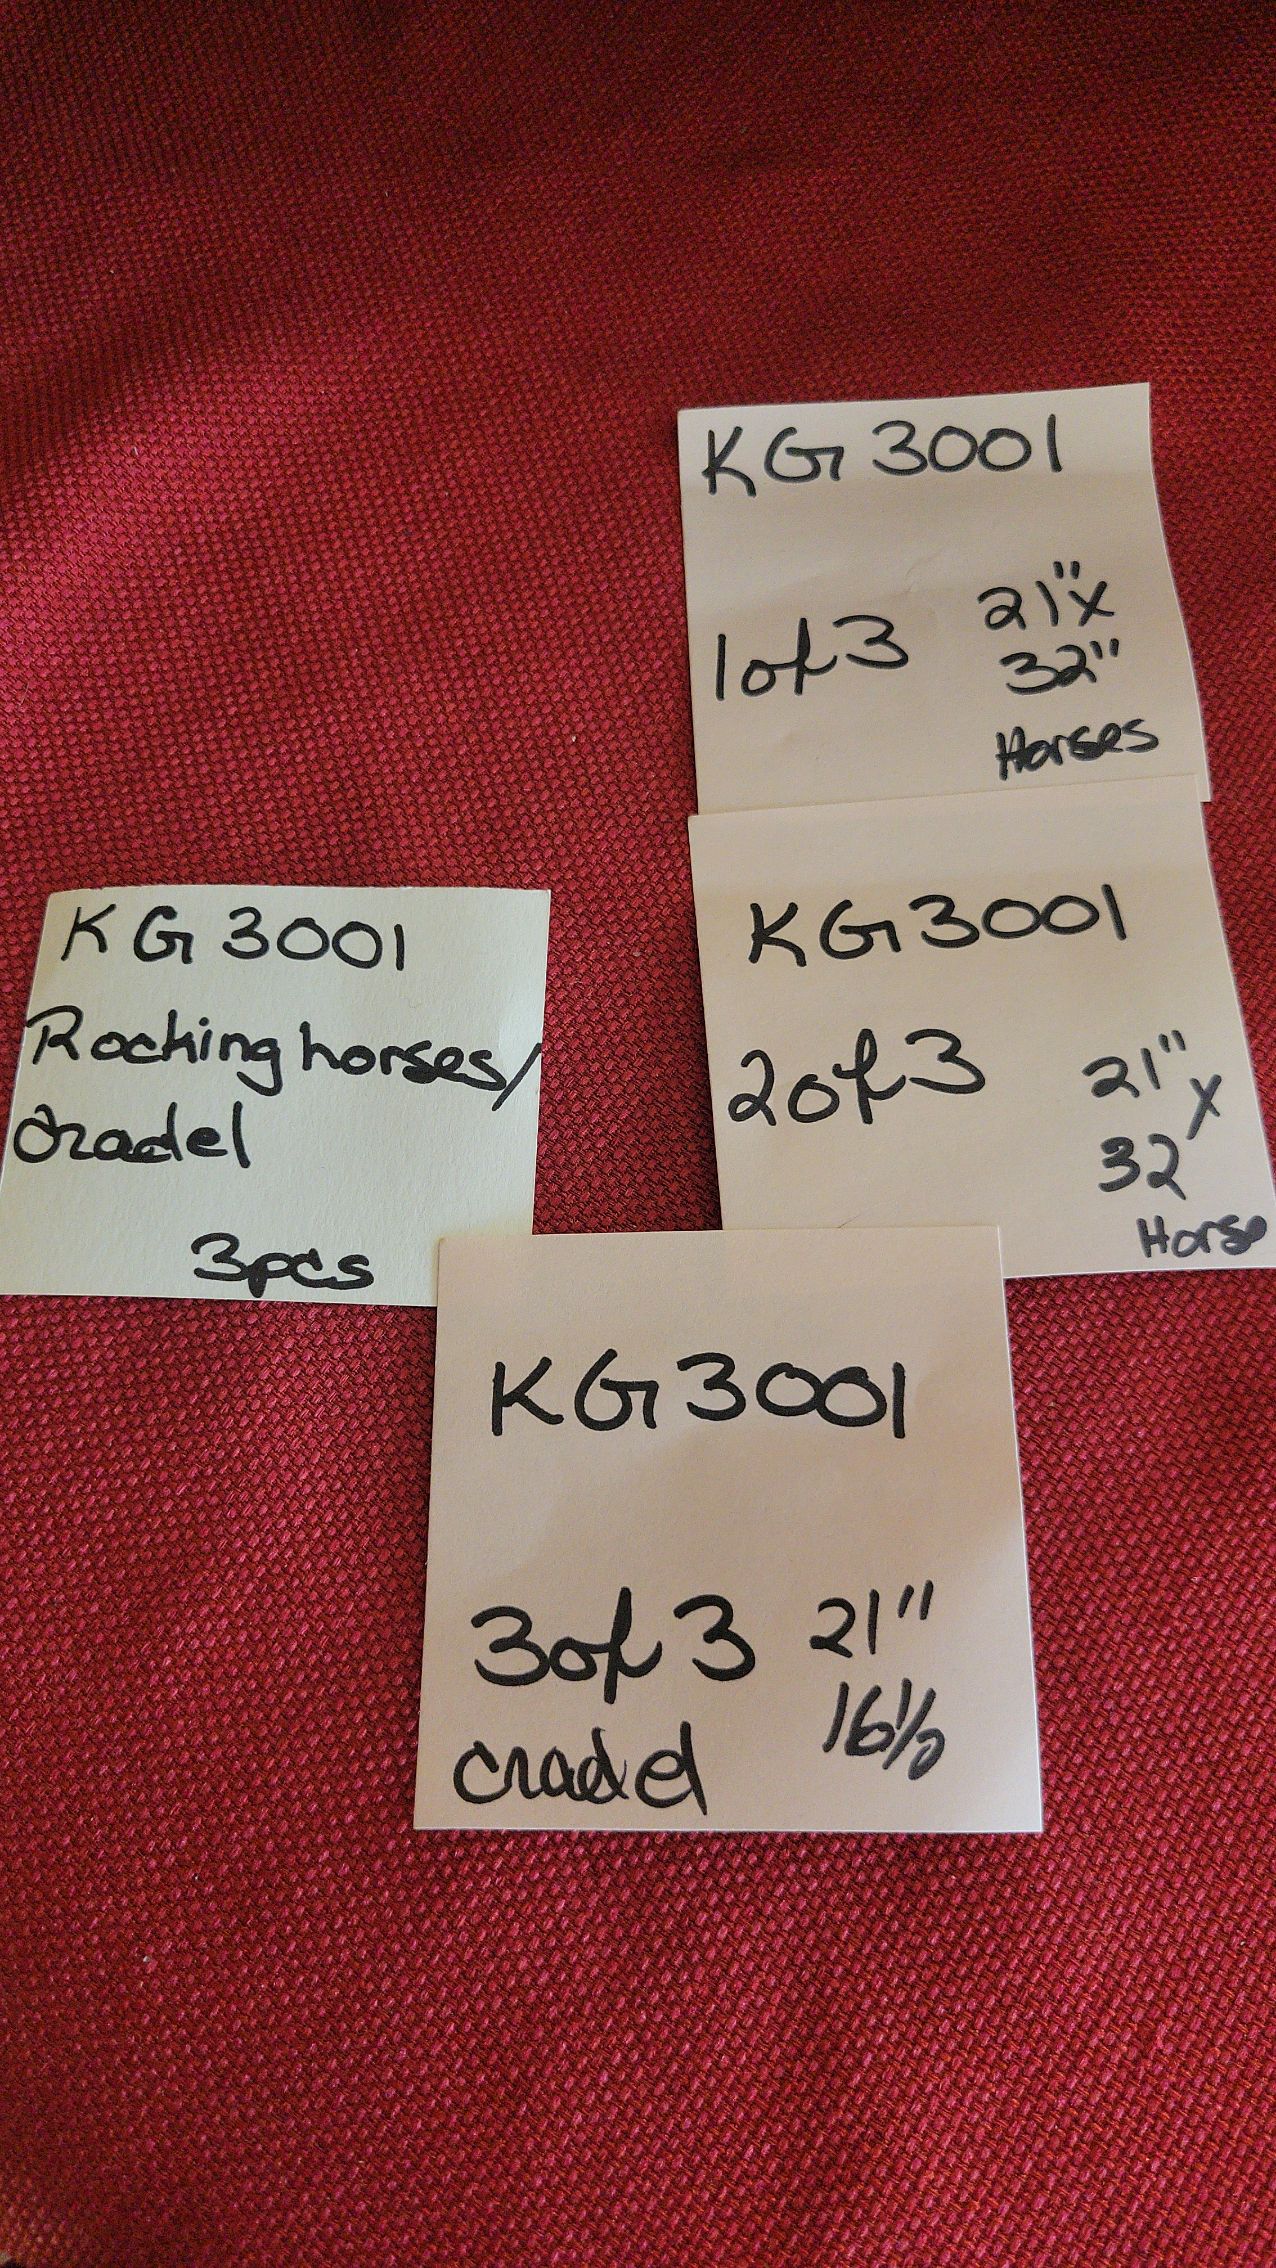 KG 3001
1 of 3
21" x
32"
Horses
KG 3001
Rocking horses/
cradel
3pcs
KG 3001
2 of 3
21" x
32
Horse
KG 3001
3 of 3
21"
16 1/2
cradel